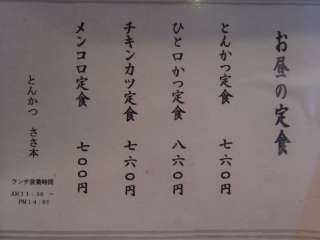 お昼の定食
とんかつ定食 七六〇円
ひと口かつ定食 八六〇円
チキンカツ定食 七六〇円
メンコロ定食 七〇〇円
とんかつ ささ本
ランチ営業時間
AM11:30 ~